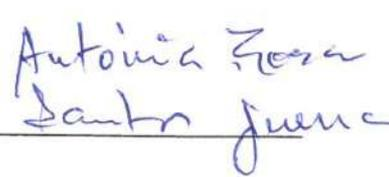 Antónia Rosa
Santos Guerra